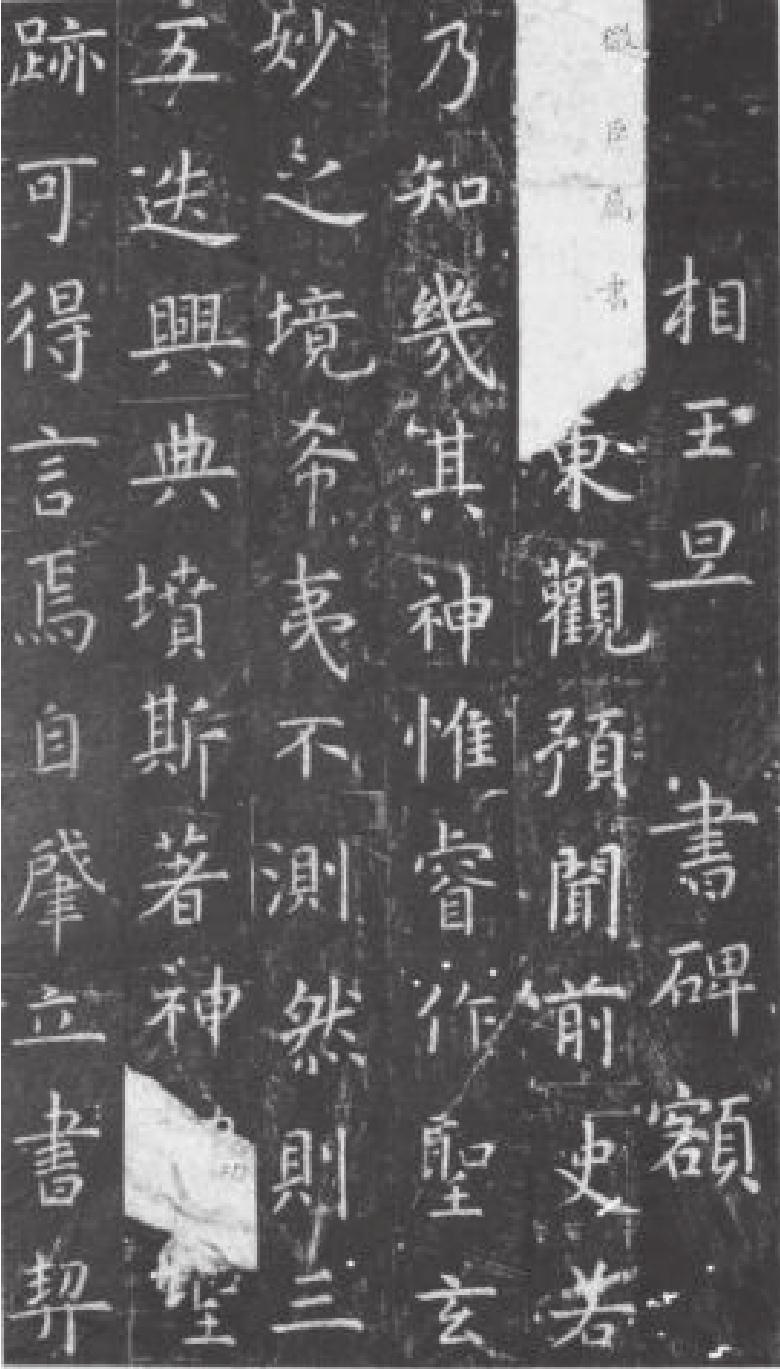 相王旦 書碑額
微臣屬書東觀預聞前史若
乃知幾其神惟睿作聖玄
妙之境希夷不測然則三
五迭興典墳斯著神功聖
跡可得言焉自肇立書契